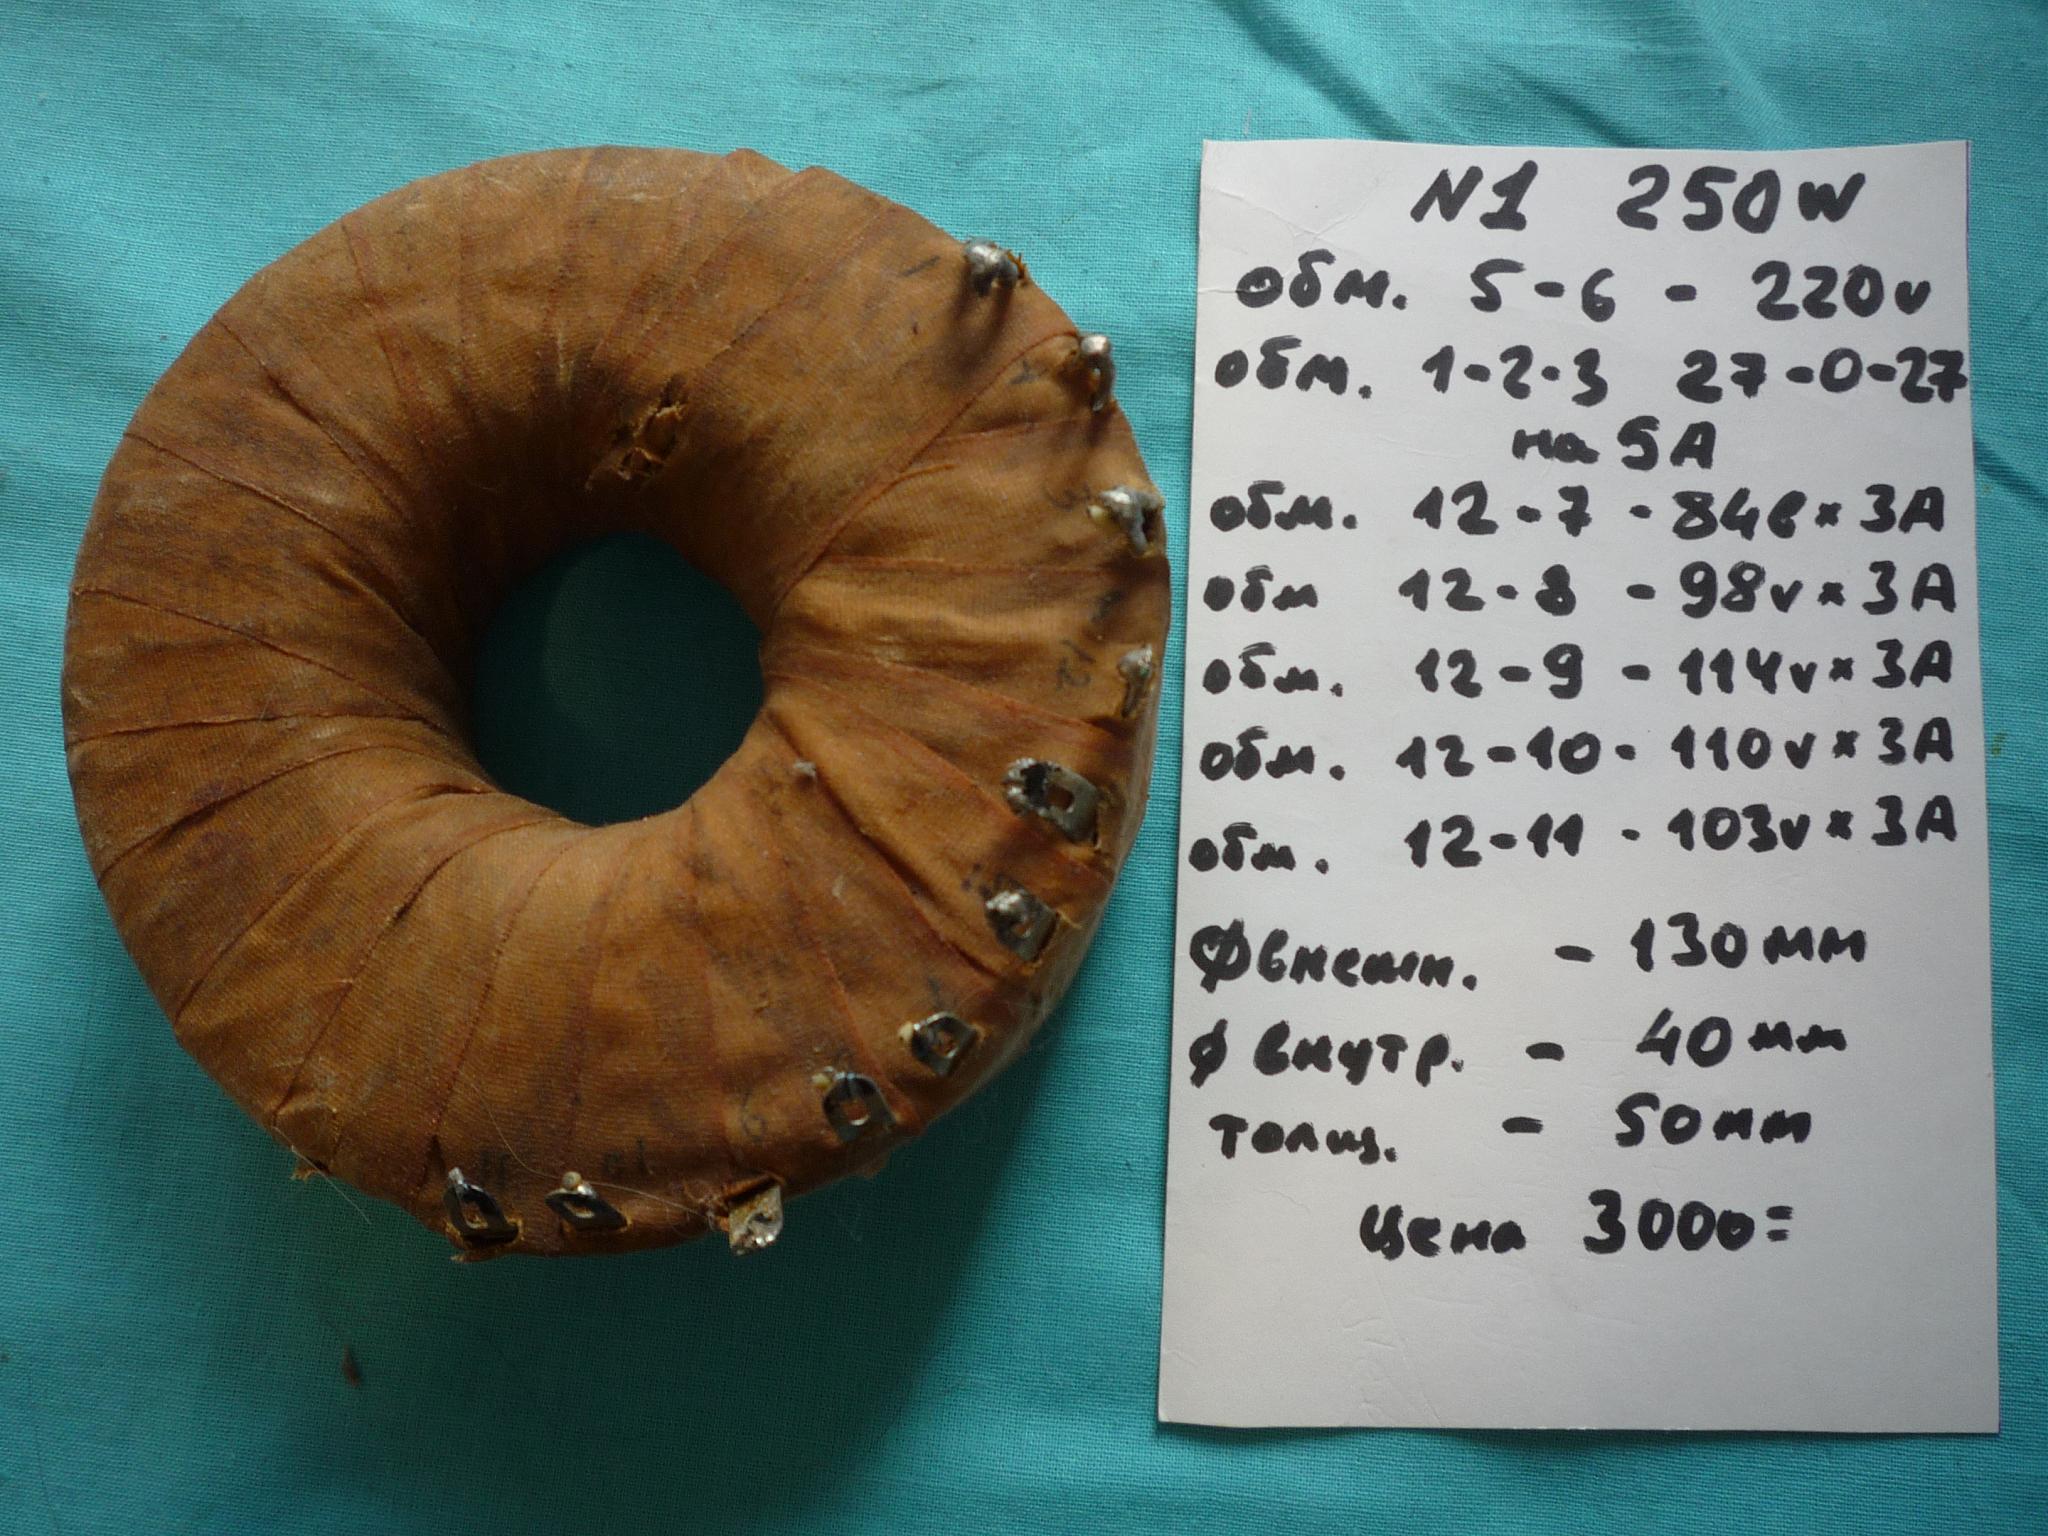 N1 250W
обм. 5-6 - 220v
обм. 1-2-3 27-0-27
на 5А
обм. 12-7 - 84в × 3А
обм 12-8 - 98v × 3А
обм. 12-9 - 114v × 3А
обм. 12-10 - 110v × 3А
обм. 12-11 - 103v × 3А
Ø внешн. - 130мм
Ø внутр. - 40мм
толщ. - 50мм
цена 3000=
12